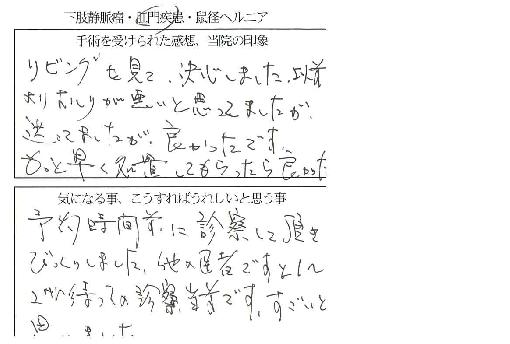 下肢静脈瘤・肛門疾患・鼠径ヘルニア
手術を受けられた感想、当院の印象
リビングを見て、決心しました。以前
よりおしりが悪いと思ってましたが
迷ってましたが、良かったです。
もっと早く処置してもらったら良かった
気になる事、こうすればうれしいと思う事
予約時間前に診察して頂き
びっくりしました。他の医者ですと1〜
2時間待っての診察当前です。すごいと
思いました